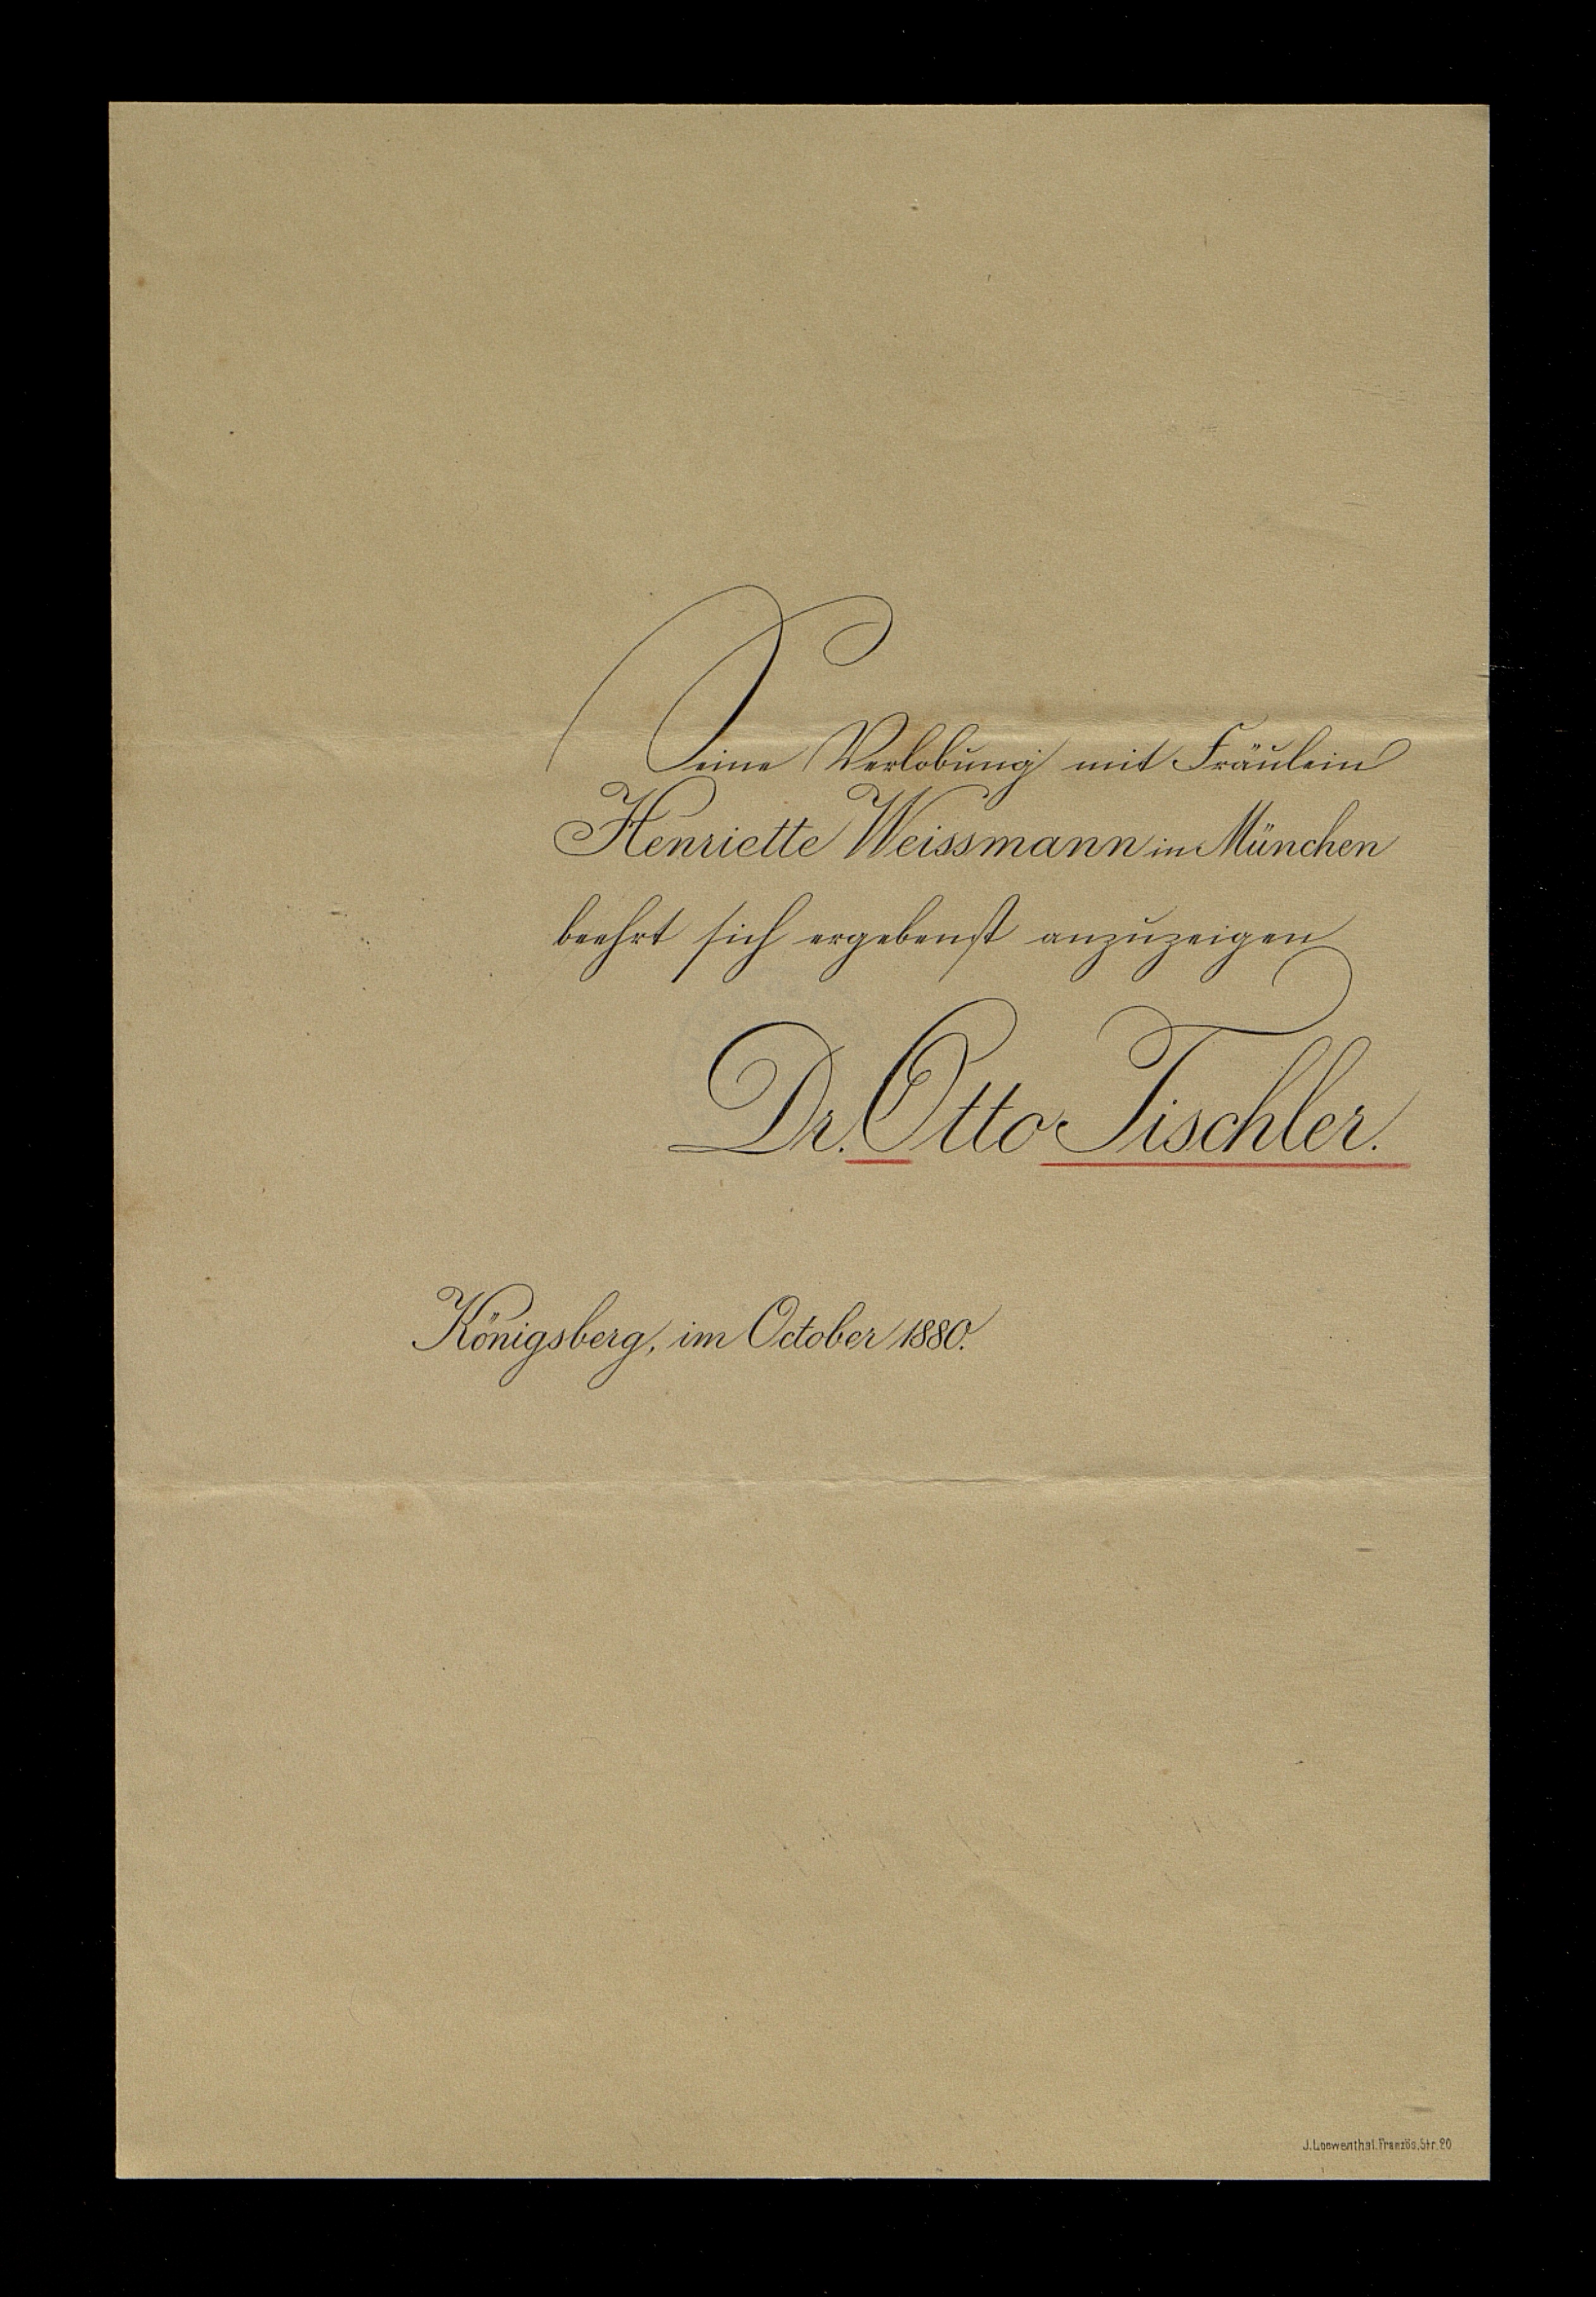 Seine Verlobung mit Fräulein
Henriette Weissmann in München
beehrt sich ergebenst anzuzeigen
Dr. Otto Tischler.
Königsberg, im October 1880.
J. Loewenthal. Französ. Str. 20